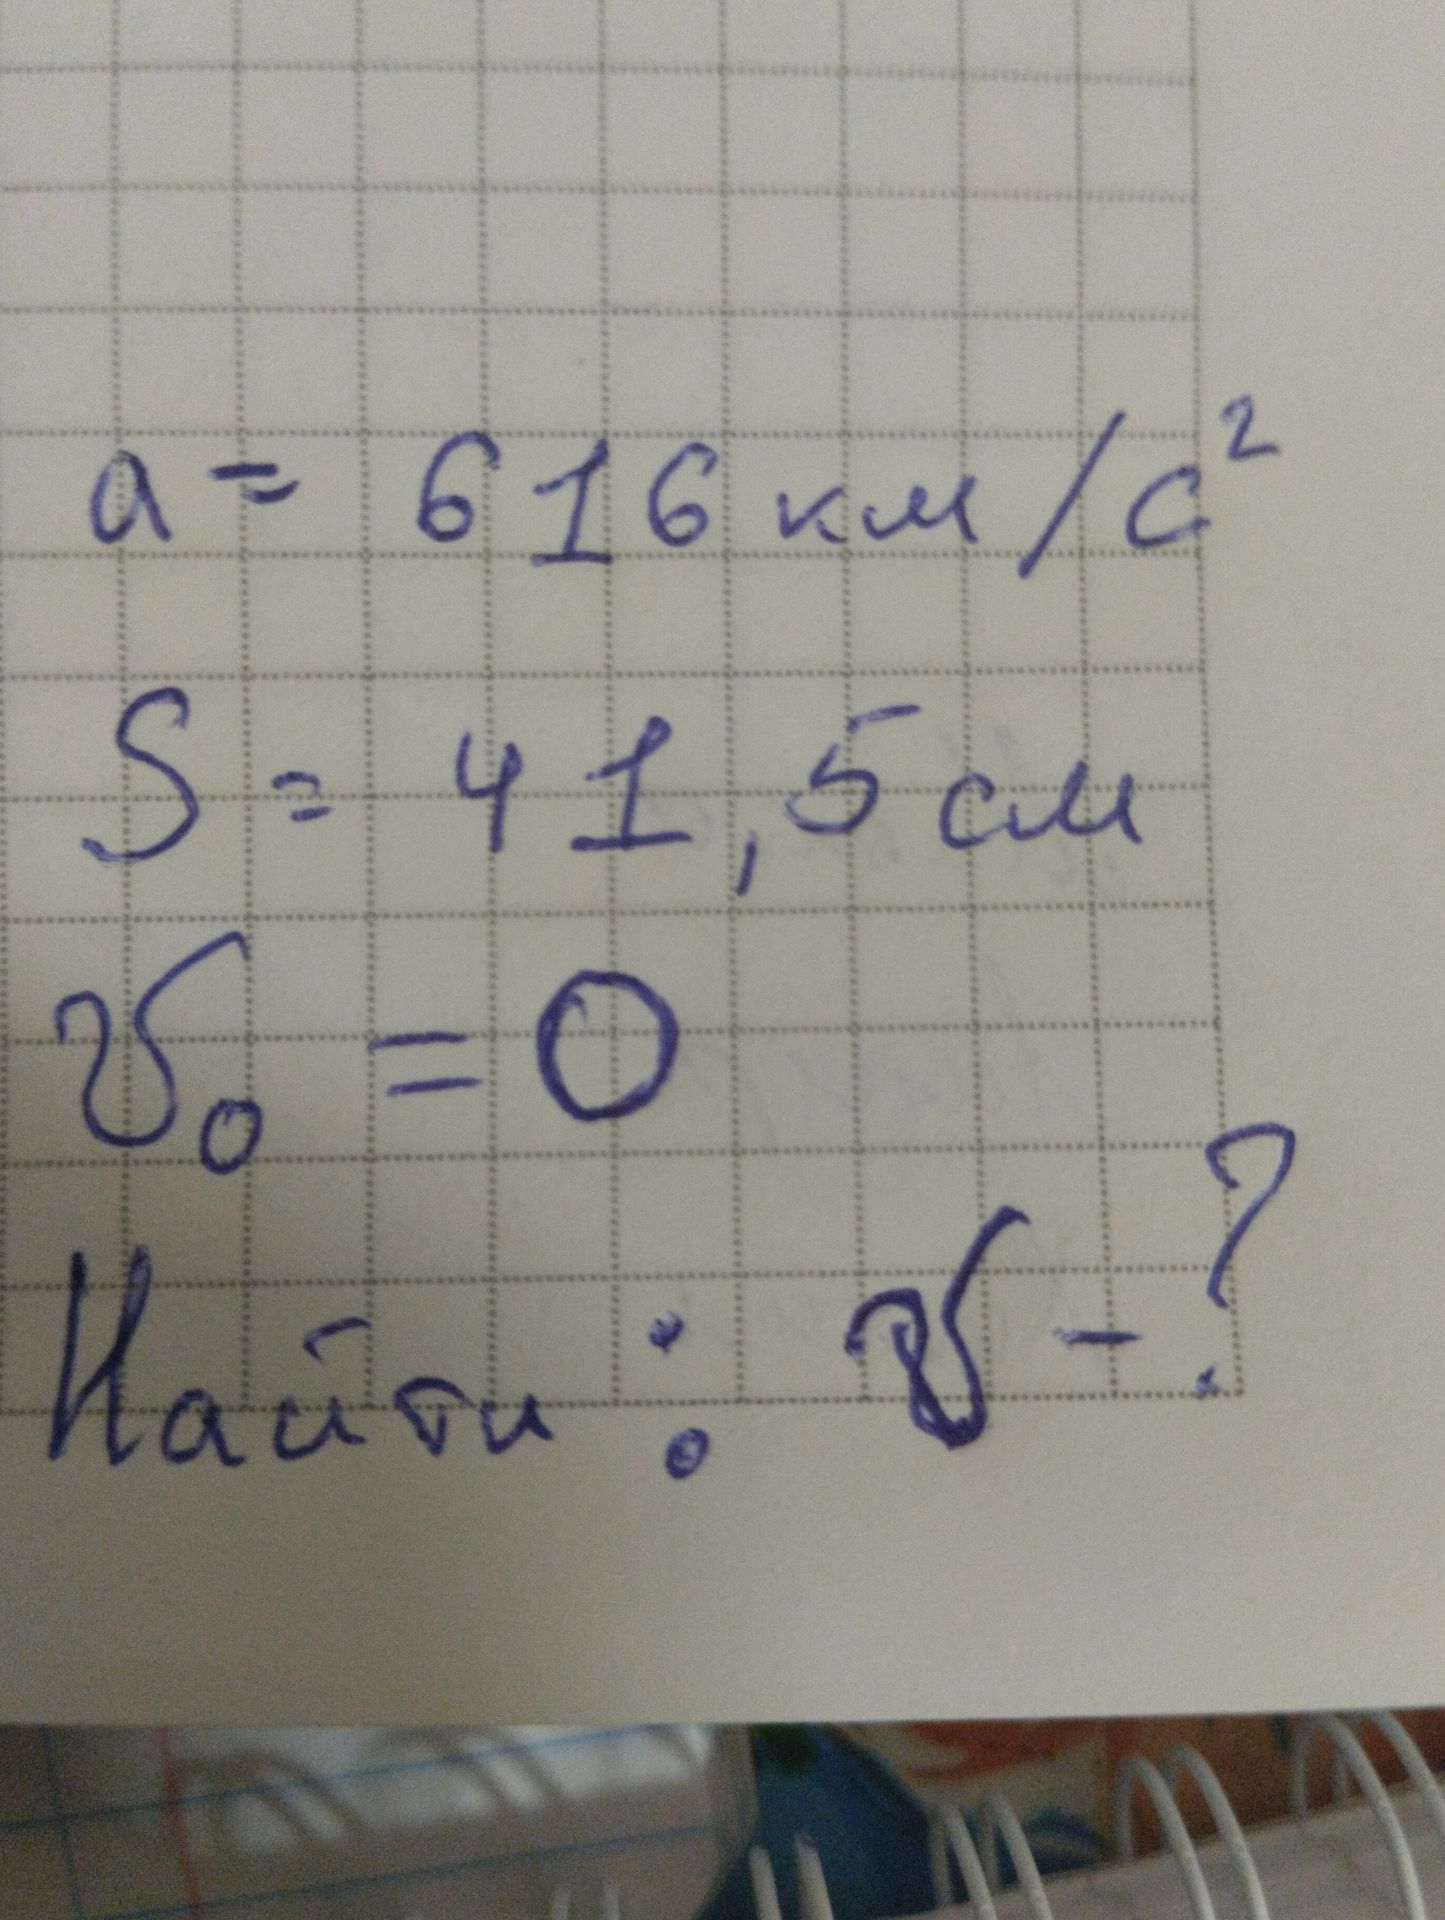 a = 616 км/с²
S = 41,5 см
v₀ = 0
Найти: v - ?